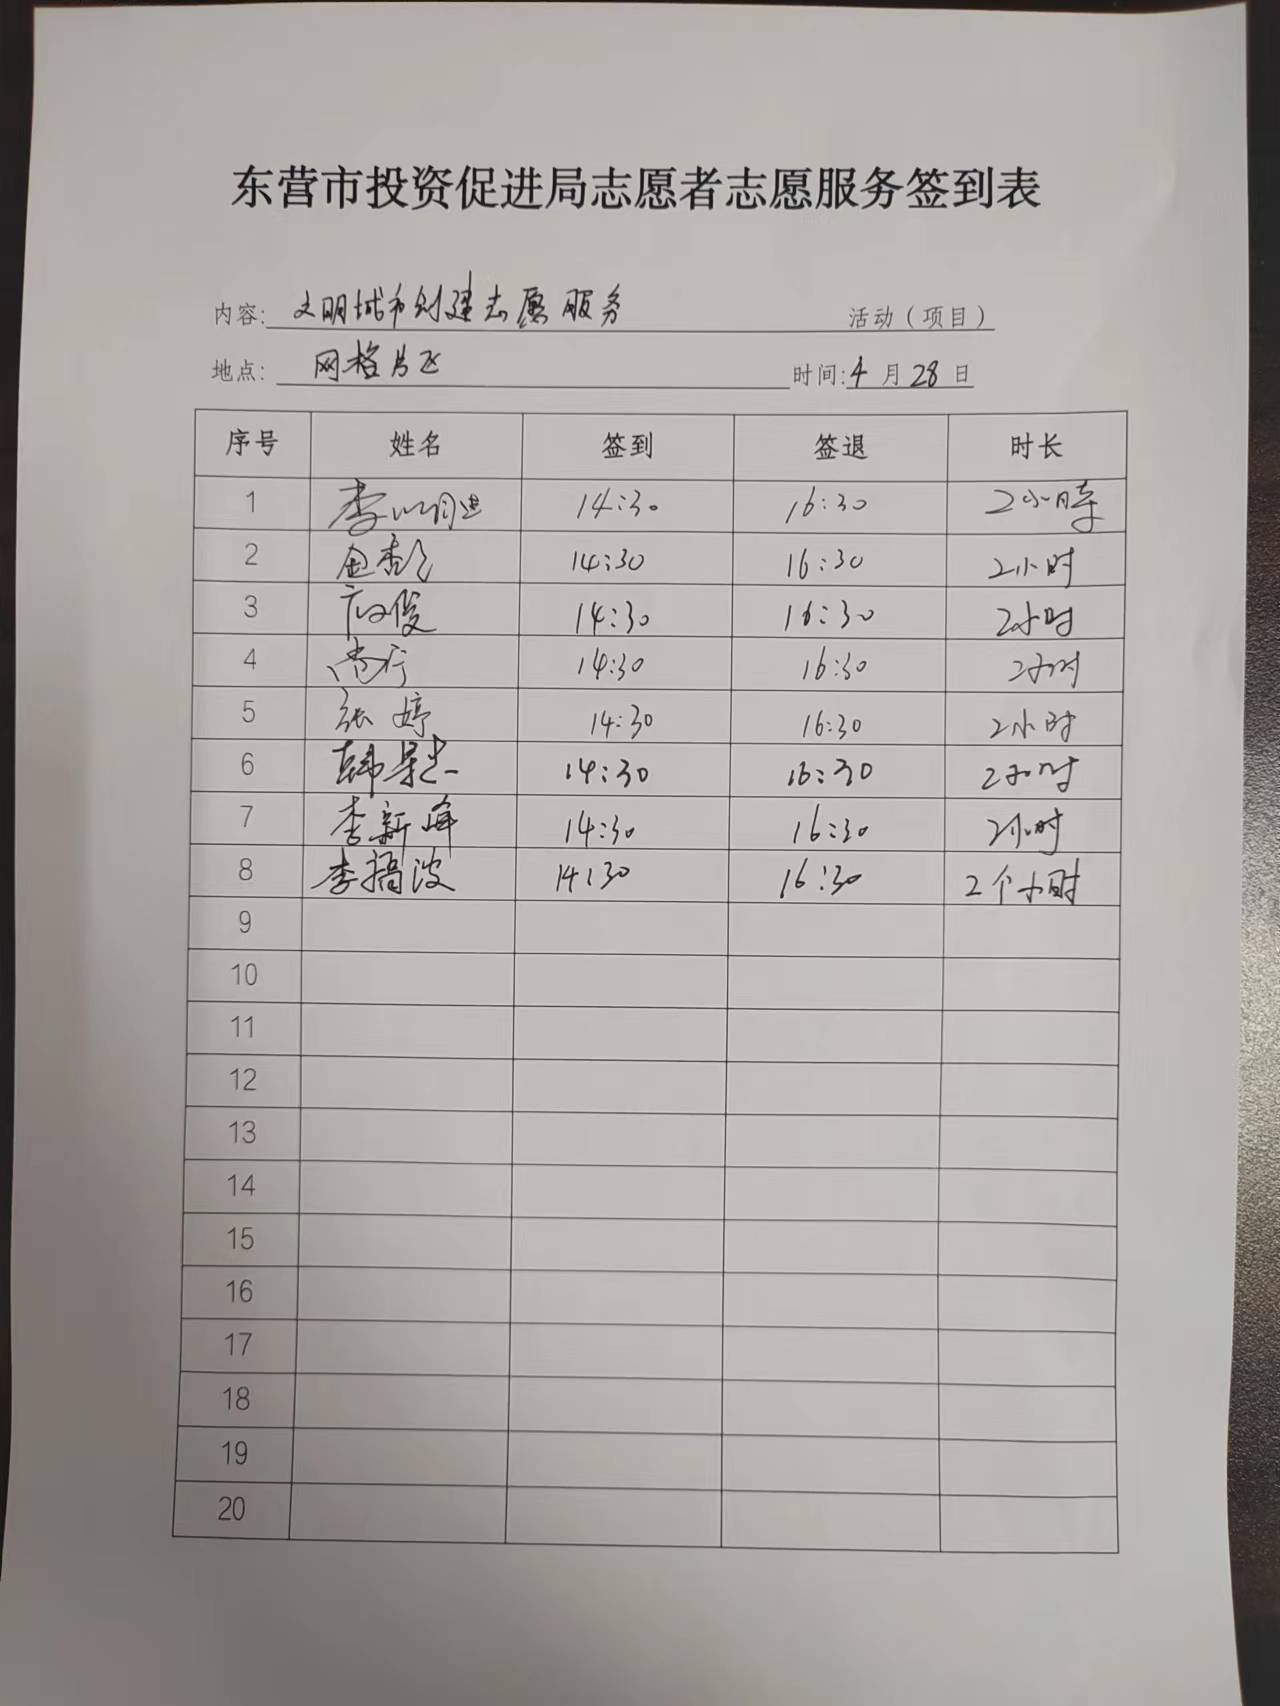 东营市投资促进局志愿者志愿服务签到表
内容: 文明城市创建志愿服务 活动（项目）
地点: 网格片区 时间: 4 月 28 日
序号 姓名 签到 签退 时长
1 14:30 16:30 2小時
2 14:30 16:30 2小时
3 14:30 16:30 2小时
4 14:30 16:30 2小时
5 张婷 14:30 16:30 2小时
6 14:30 16:30 2小时
7 李新峰 14:30 16:30 2小时
8 14:30 16:30 2个小时
9
10
11
12
13
14
15
16
17
18
19
20